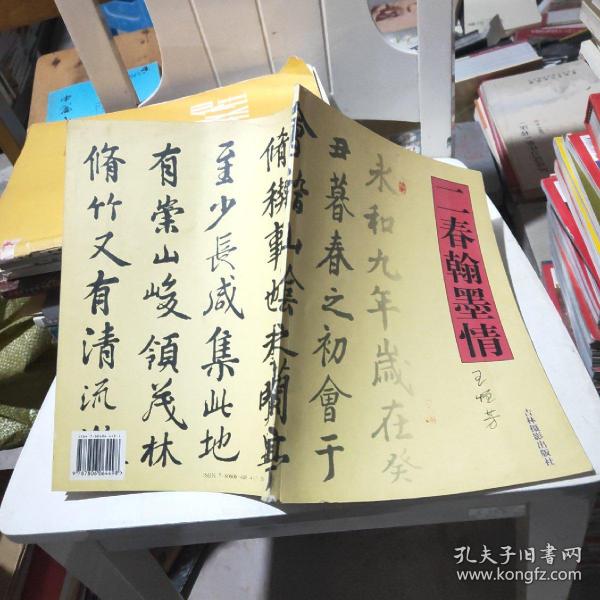 二春翰墨情
王恒芳
吉林摄影出版社
永和九年歲在癸
丑暮春之初會于
會稽山陰
蘭亭
脩稧事也
至少長咸集此地
有崇山峻領茂林
脩竹又有清流
孔夫子旧书网
www.kongfz.com